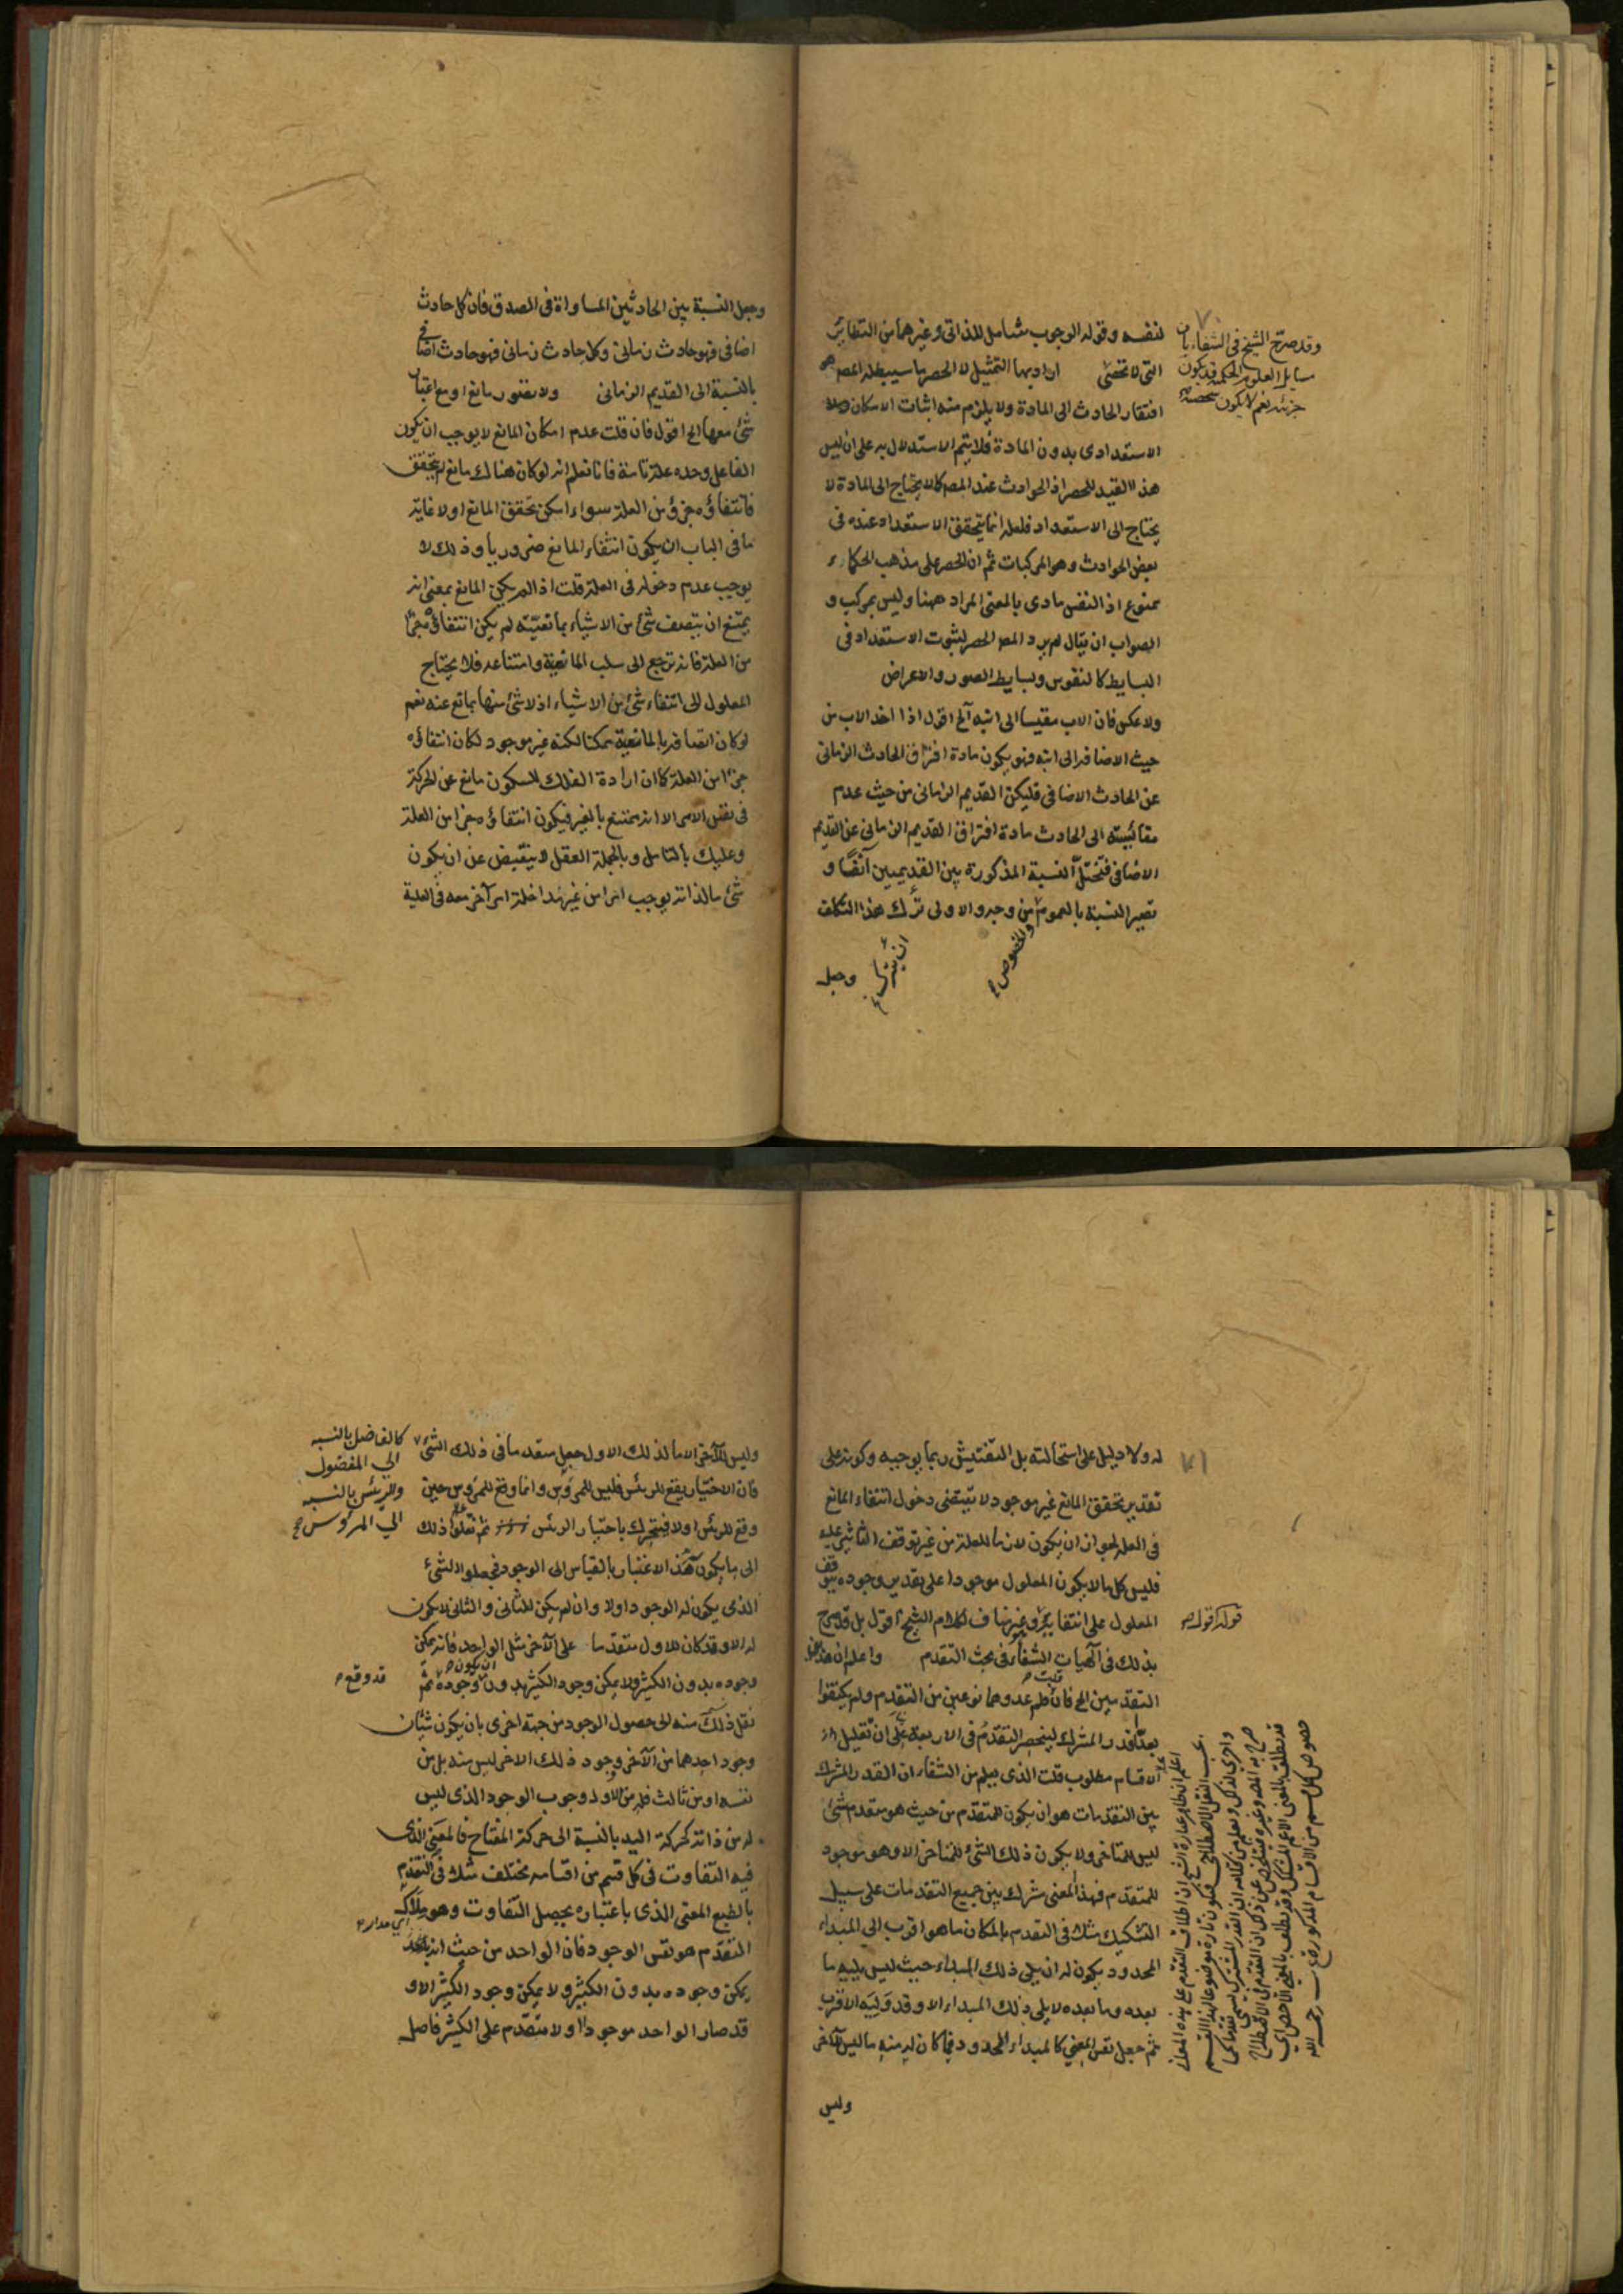 ٧٠
لنفسه وقوله الوجوب شامل للذاتي وغيرهما من النظائر
التي لا تحصى اراد بها التمثيل لا الحصر ما سيبطله المص
افتقار الحادث الى المادة ولا يلزم منه اثبات الامكان
الاستعدادى بدون المادة فلا يتم الاستدلال به على ان ليس
هذا القيد للحصر اذ الحوادث عند المص كما لا يحتاج الى المادة لا
يحتاج الى الاستعداد فلعله انما يتحقق الاستعداد عنده فى
بعض الحوادث وهو المركبات ثم ان الحصر على مذهب الحكماء
ممنوع اذ النفس مادى بالمعنى المراد ههنا وليس بمركب و
الصواب ان يقال لم يرد المص الحصر لثبوت الاستعداد فى
البسايط كالنفوس وبسايط الصور والاعراض
ولا عكس فان الاب مقيسا الى ابنه آلخ اقول اذا اخذ الاب من
حيث الاضافه الى ابنه فهو يكون مادة افتراق الحادث الزمانى
عن الحادث الاضافى فليكن القديم الزمانى من حيث عدم
مقائسته الى الحادث مادة افتراق القديم الزمانى عن القديم
الاضافى فتختل النسبة المذكورة بين القديميين آنفا و
تصير النسبة بالعموم من وجه والاولى ترك هذا التكلف
والخصوص
وجعل
وقد صرح الشيخ فى الشفاء بان
مسايل العلوم الحكمية قد يكون
جزئية نعم لا يكون شخصية
وجعل النسبة بين الحادثين المساواة فى الصدق فان كل حادث
اضافى فهو حادث زمانى وكل حادث زمانى فهو حادث اضافى
بالنسبة الى القديم الزمانى ولا بتصور مانع او مع اعتبار
شئ معها الخ اقول فان قلت عدم امكان المانع لا يوجب ان يكون
الفاعل وحده علة تامة فانا نعلم انه لو كان هناك مانع لم يتحقق
فانتفاؤه جزؤ من العلة سواء امكن تحقق المانع اولا غاية
ما فى الباب ان يكون انتفاء المانع ضروريا وذلك لا
يوجب عدم دخوله فى العلة قلت اذا لم يكن المانع بمعنى انه
يمتنع ان يتصف شئ من الاشياء بمانعيته لم يكن انتفاؤه جزءا
من العلة فانه ترجع الى سلب المانعية وامتناعه فلا يحتاج
المعلول الى انتفاء شئ من الاشياء اذ لا شئ منها بمانع عنه نعم
لو كان اتصافه بالمانعية ممكنا لكنه غير موجود لكان انتفاؤه
جزءا من العلة كما ان ارادة الفلك للسكون مانع عن الحركة
فى نفس الامر الا انه ممتنع بالغير فيكون انتفاؤه جزءا من العلة
وعليك بالتامل وبالجملة العقل لا ينقبض عن ان يكون
شئ ما لذاته يوجب امرا من غير مداخلة امر آخر معه فى العلية
٧١
له ولا دليل على استحالته بل التفتيش ربما يوجبه وكونه على
تقدير تحقق المانع غير موجود لا يقتضى دخول انتفاء المانع
فى العلة لجواز ان يكون لازما للعلة من غير توقف التاثير عليه
فليس كل ما لا يكون المعلول موجودا على تقدير وجوده يتوقف
المعلول على انتفائه وغيرها ف لكلام الشيخ اقول بل قد صرح
بذلك فى آلهيات الشفاء فى بحث التقدم واعلم ان هذين
التقدمين الخ فان قلت فلم عدوهما نوعين من التقدم ولم يكتفوا
بعد القدر المشترك لينحصر التقدم فى الاربعة على ان تقليل
الاقسام مطلوب قلت الذى يعلم من الشفاء ان القدر المشترك
بين التقدمات هو ان يكون للمتقدم من حيث هو متقدم شئ
ليس للمتاخر ولا يكون ذلك الشئ للمتاخر الا وهو موجود
للمتقدم فهذا المعنى مشترك بين جميع التقدمات على سبيل
التشكيك مثلا فى التقدم بالمكان ما هو اقرب الى المبداء
المحدود يكون له ان يلى ذلك المبداء حيث ليس يليه ما
بعده وما بعده لا يلى ذلك المبداء الا وقد وليه الاقرب
ثم جعل نفس المعنى كالمبداء المحدود فما كان له منه ما ليس للآخر
وليس
قوله اقول
اعلم ان ظاهر عبارة الشيخ ان اطلاق التقدم على هذه المعانى
بحسب النقل الاصطلاحى
وليس للآخر الا ما لذلك الاول جعل متقدما فى ذلك الشئ
كالفاضل بالنسبة
الى المفضول
والرئيس بالنسبة
الى المرؤوس
فان الاختيار يقع للرئيس فليس للمرؤس وانما وقع للمرؤس حين
وقع للرئيس اولا فيتحرك باختيار الرئيس ثم نقلوا ذلك
الى ما يكون هذا الاعتبار بالقياس الى الوجود فجعلوا الشئ
الذى يكون له الوجود اولا وان لم يكن للثانى والثانى لا يكون
له الا وقد كان للاول متقدما على الآخر مثل الواحد فانه يمكن
وجوده بدون الكثير ولا يمكن وجود الكثير بدون وجوده ثم
ان يكون
قد وقع
نقل ذلك منه الى حصول الوجود من جهة اخرى بان يكون شيئان
وجود احدهما من الآخر ووجود ذلك الاخر ليس منه بل من
نفسه او من ثالث فله من الاول وجوب الوجود الذى ليس
له من ذاته كحركة اليد بالنسبة الى حركة المفتاح فالمعنى الذى
فيه التفاوت فى كل قسم من اقسامه مختلف مثلا فى التقدم
بالطبع المعنى الذى باعتباره يحصل التفاوت وهو ملاك
اى مداره
التقدم هو نفس الوجود فان الواحد من حيث انه
يمكن وجوده بدون الكثير ولا يمكن وجود الكثير الا و
قد صار الواحد موجودا اولا متقدم على الكثير فاصل